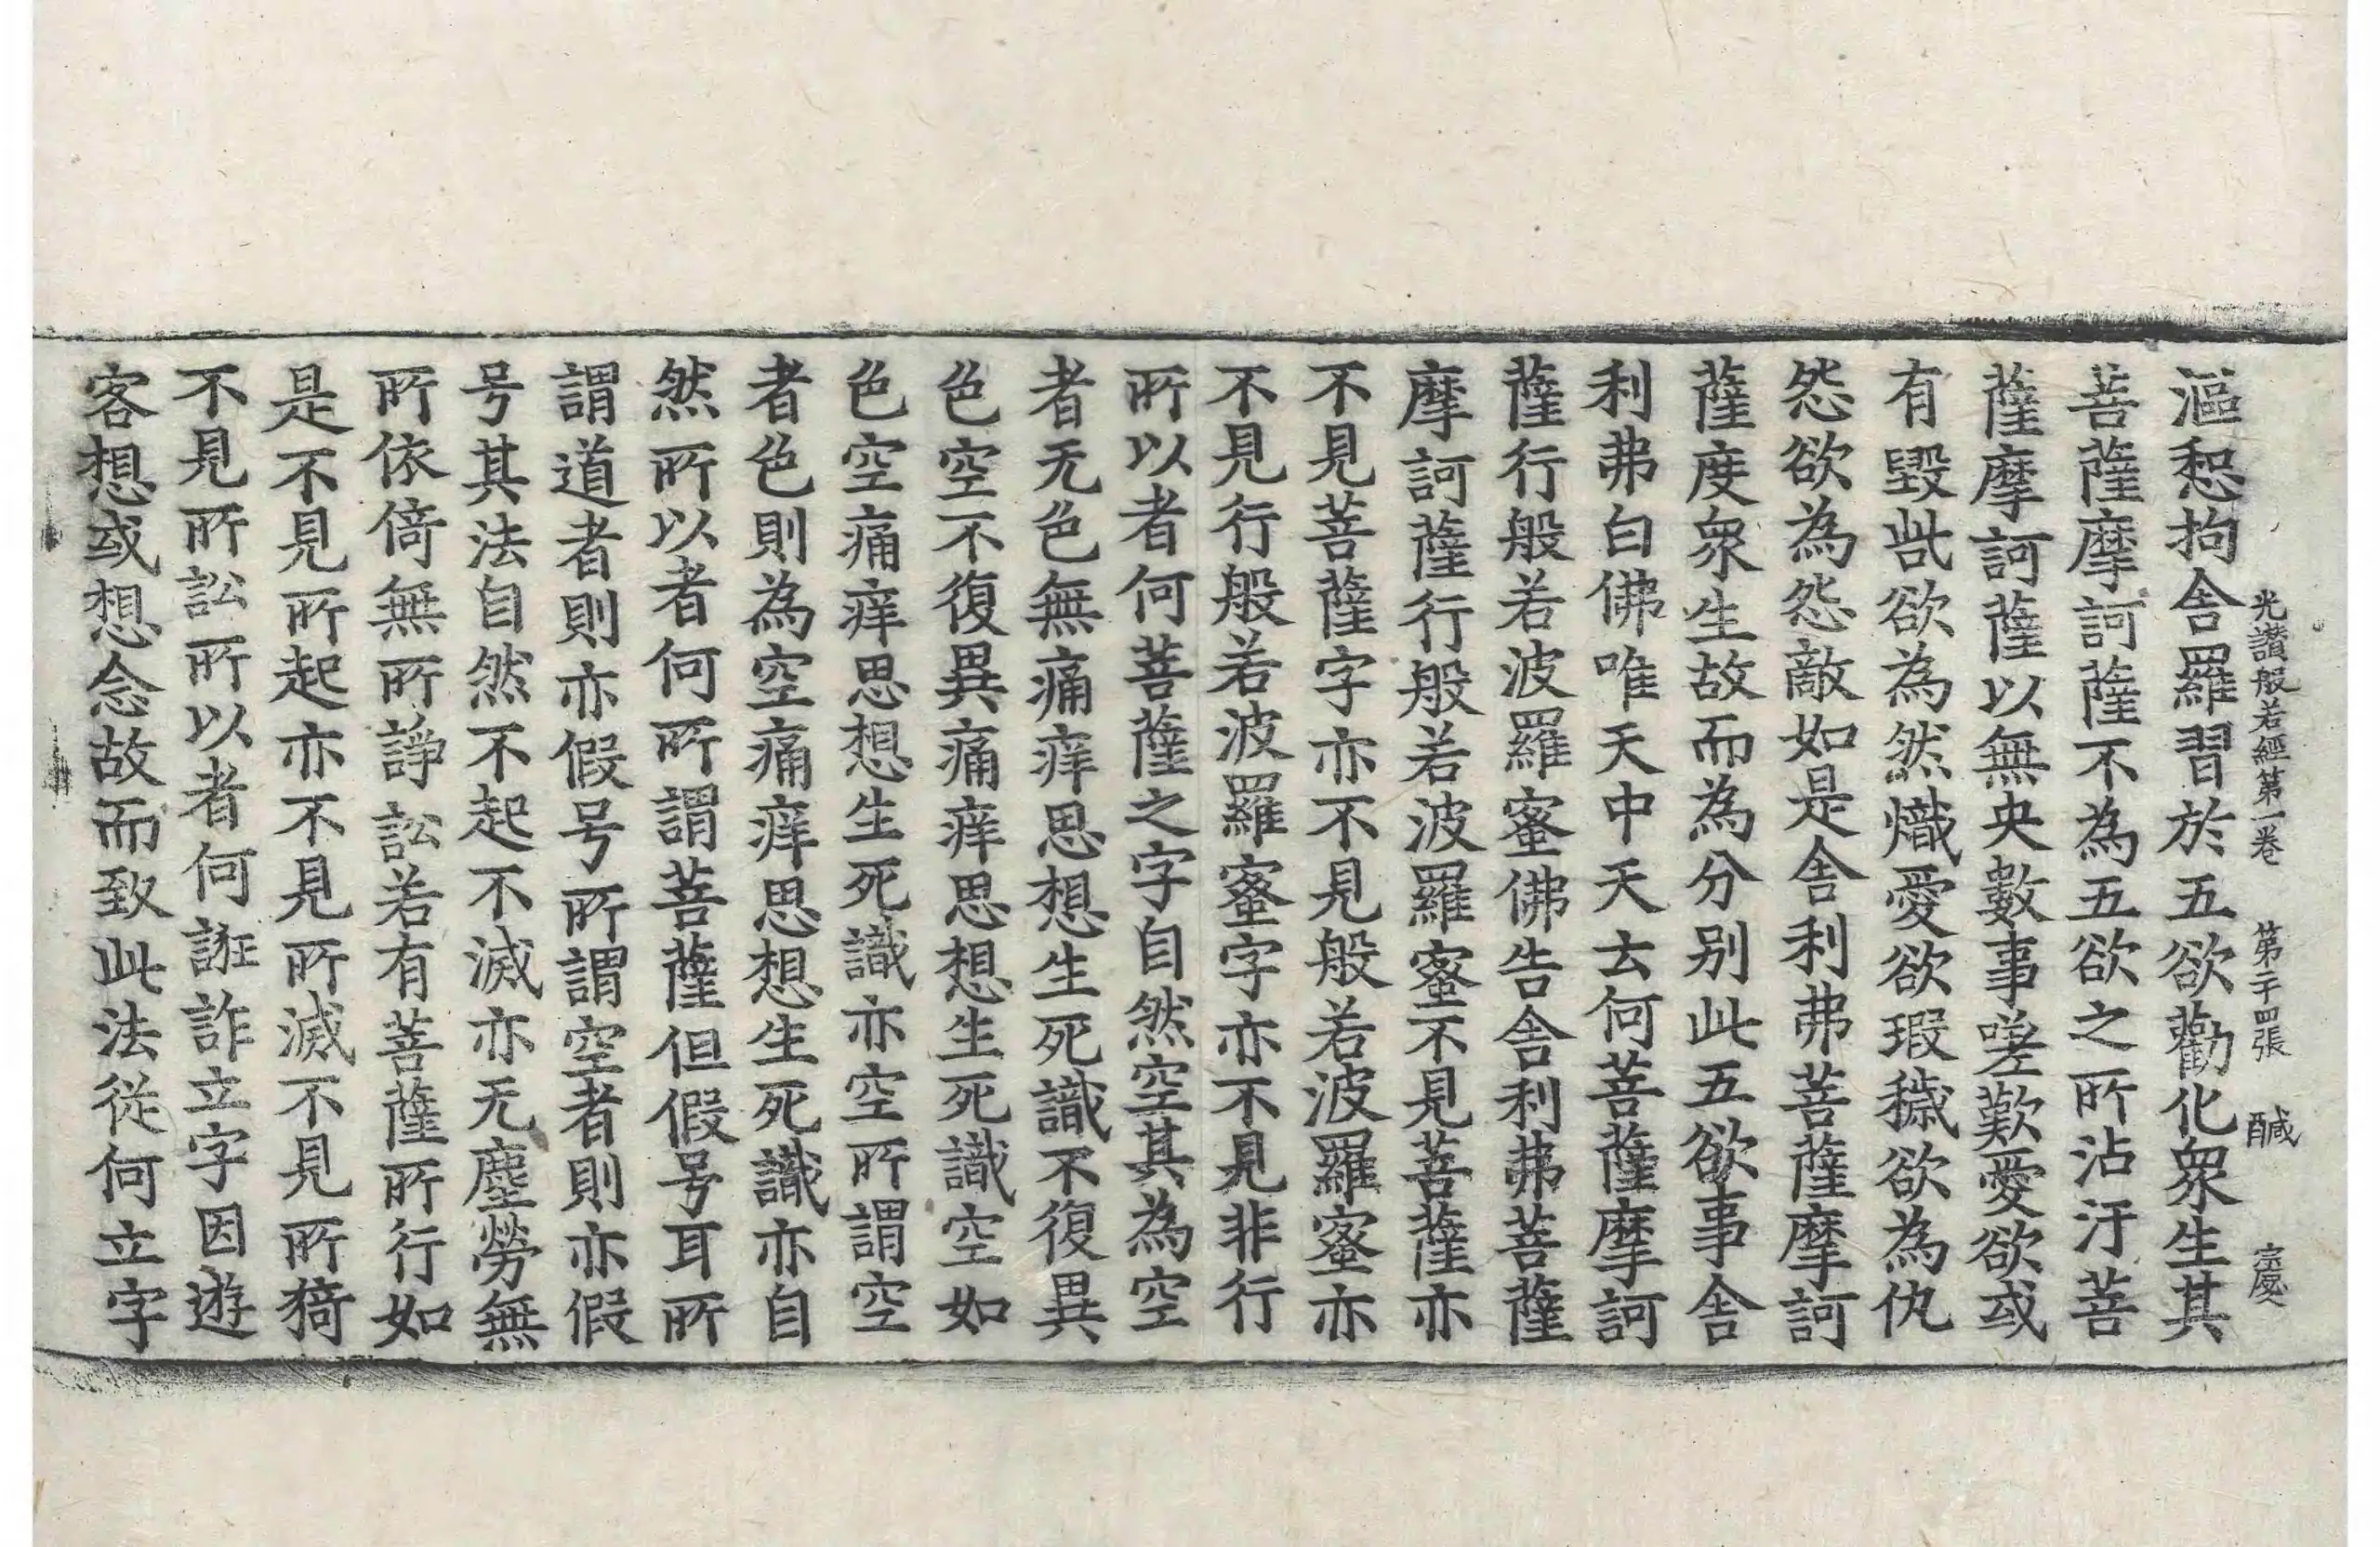 光讚般若經第一卷 第二十四張 醎 宗處
漚恕拘舍羅習於五欲勸化衆生其
菩薩摩訶薩不為五欲之所沾汙菩
薩摩訶薩以無央數事嗟歎愛欲或
有毀呰欲為然熾愛欲瑕穢欲為仇
怨欲為怨敵如是舍利弗菩薩摩訶
薩度衆生故而為分別此五欲事舍
利弗白佛唯天中天去何菩薩摩訶
薩行般若波羅蜜佛告舍利弗菩薩
摩訶薩行般若波羅蜜不見菩薩亦
不見菩薩字亦不見般若波羅蜜亦
不見行般若波羅蜜字亦不見非行
所以者何菩薩之字自然空其為空
者无色無痛痒思想生死識不復異
色空不復異痛痒思想生死識空如
色空痛痒思想生死識亦空所謂空
者色則為空痛痒思想生死識亦自
然所以者何所謂菩薩但假号耳所
謂道者則亦假号所謂空者則亦假
号其法自然不起不滅亦无塵勞無
所依倚無所諍訟若有菩薩所行如
是不見所起亦不見所滅不見所猗
不見所訟所以者何誑詐立字因遊
客想或想念故而致此法從何立字